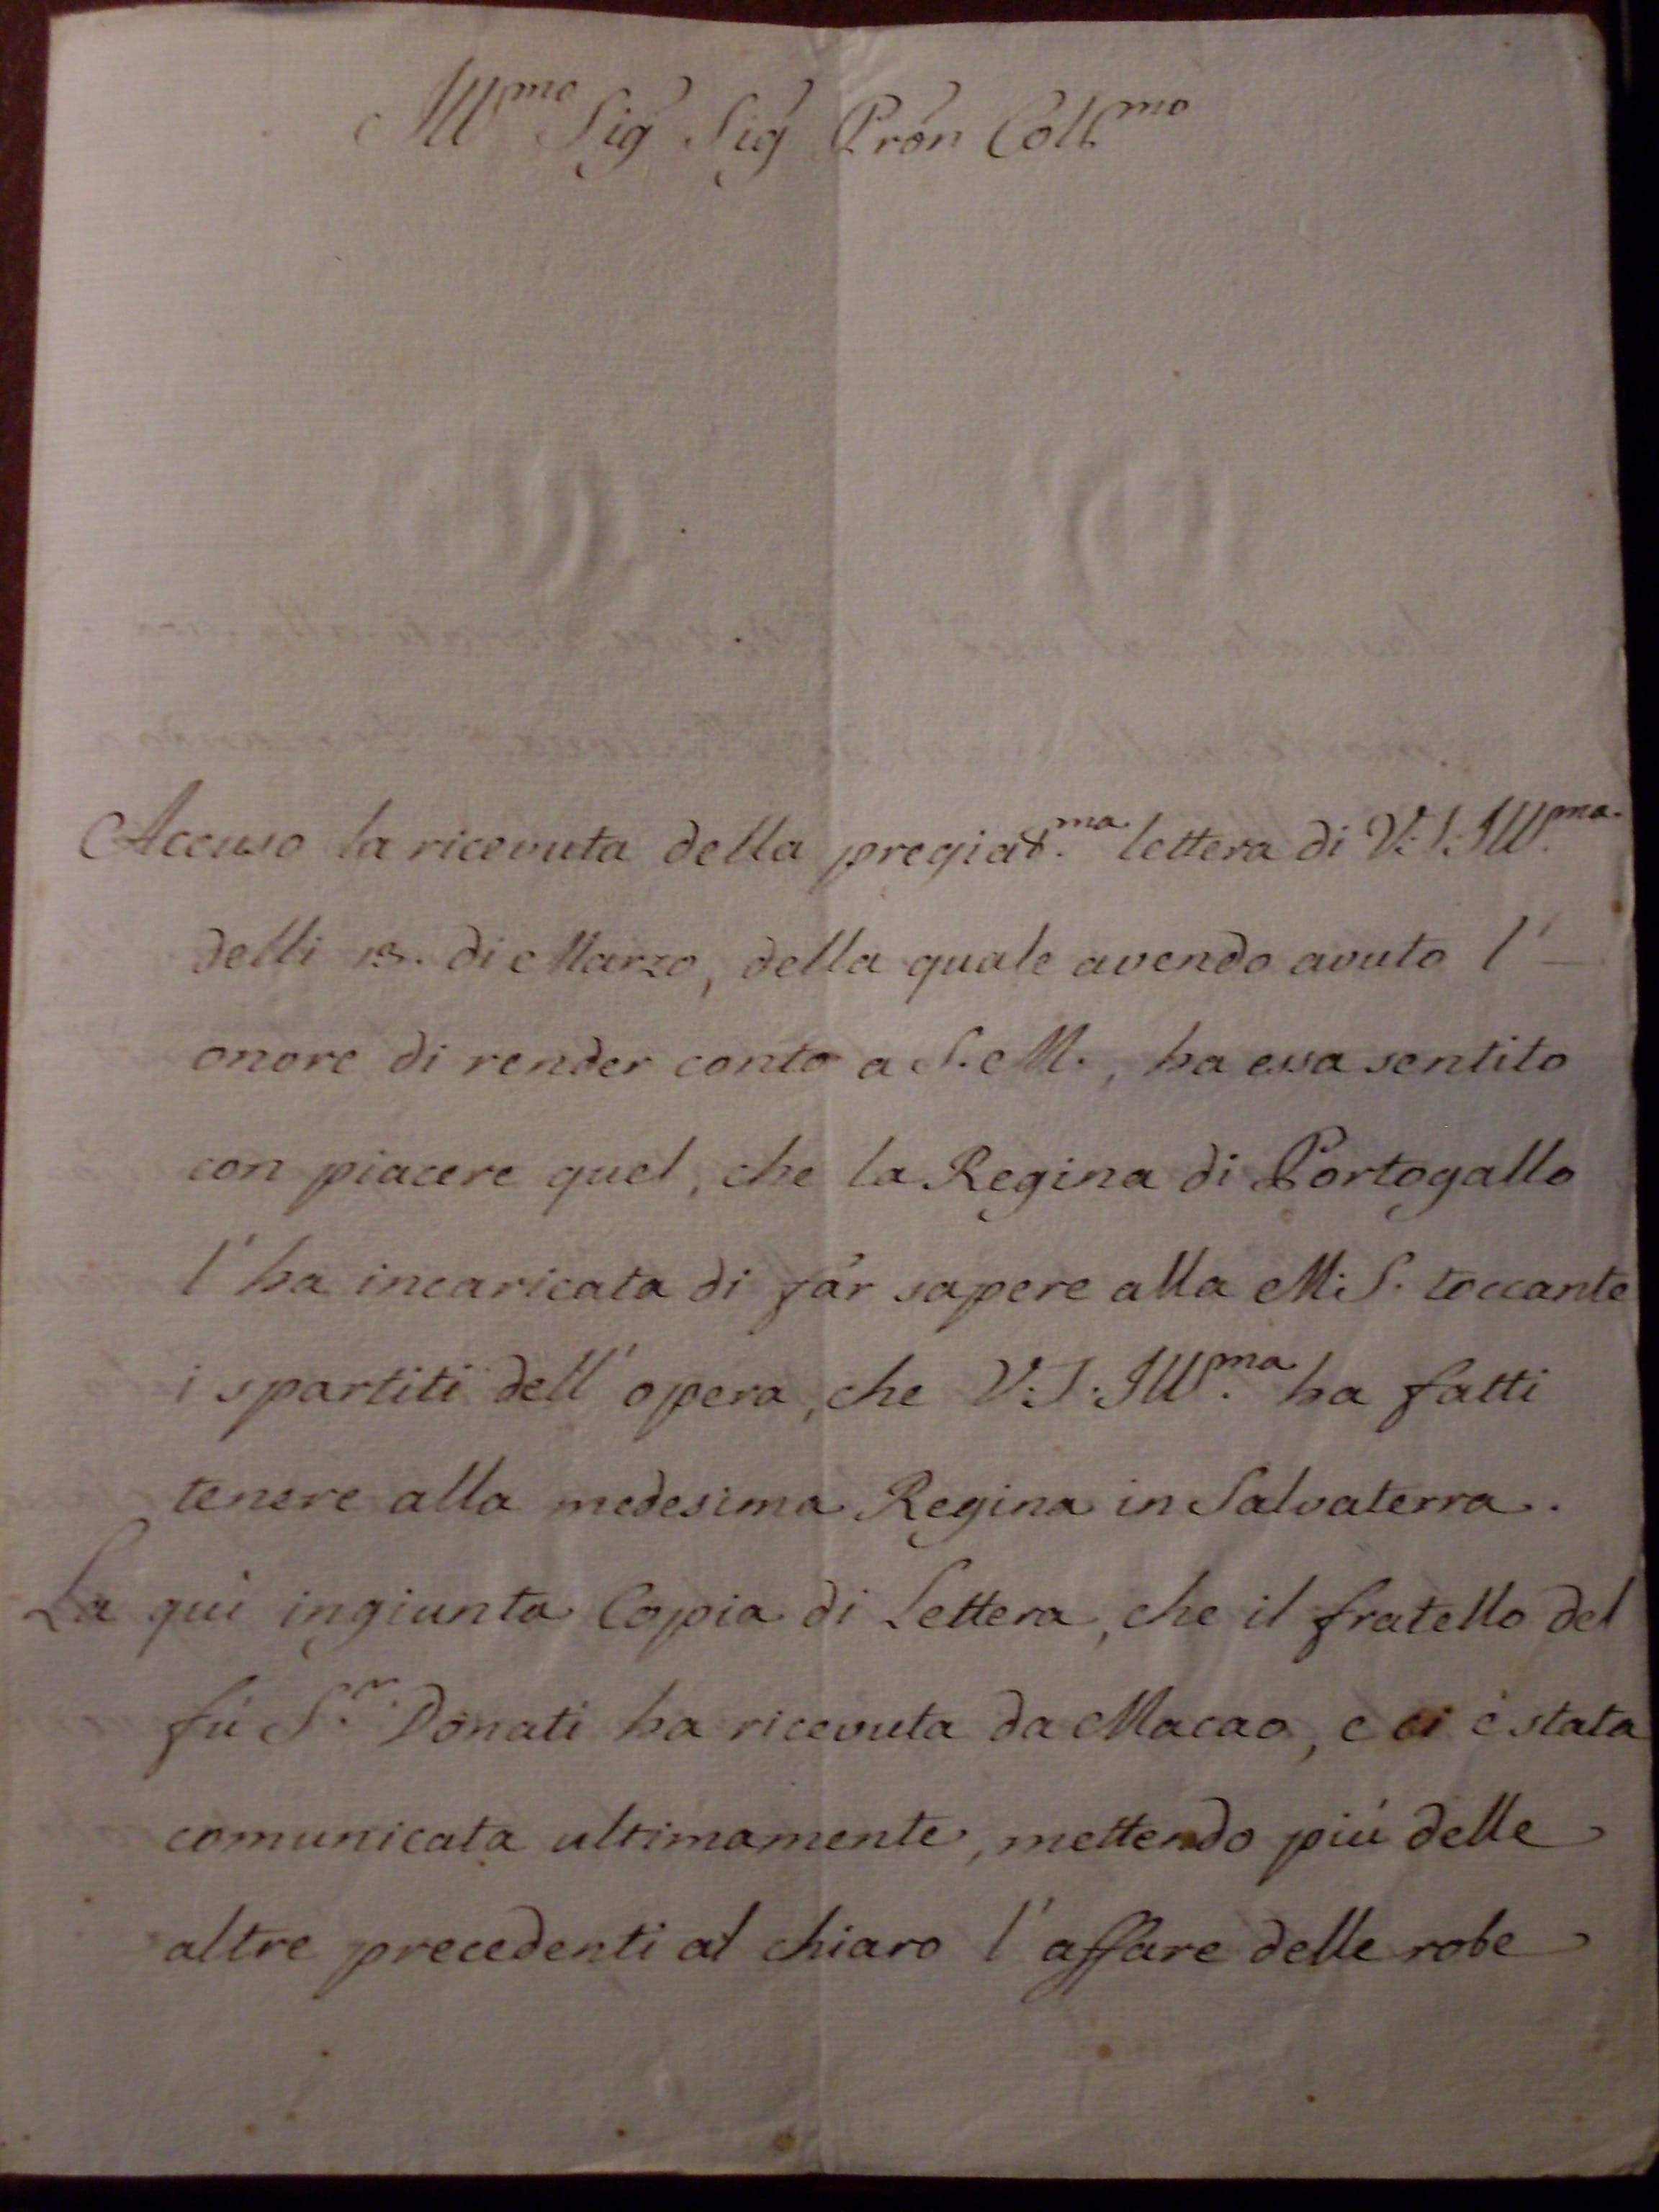 Ill.mo Sig Sig Pron Coll.mo
Accuso la ricevuta della pregiat.ma lettera di V: S: Ill.ma
delli 13. di Marzo, della quale avendo avuto l'
onore di render conto a S. M., ha essa sentito
con piacere quel, che la Regina di Portogallo
l'ha incaricata di fár sapere alla M: S. toccante
i spartiti dell'opera, che V: S: Ill.ma ha fatti
tenere alla medesima Regina in Salvaterra.
La qui ingiunta Copia di Lettera, che il fratello del
fú S.r Donati ha ricevuta da Macao, e ci é stata
comunicata ultimamente, mettendo piú delle
altre precedenti al chiaro l'affare delle robe